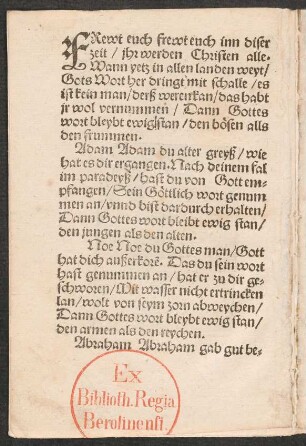 FRewt euch frewt euch inn diser
zeit / jhr werden Christen alle.
Wann yetz in allen landen weyt /
Gots Wort her dringt mit schalle / es
ist kein man / derß wereñ kan / das habt
jr wol vernummen / Dann Gottes
wort bleybt ewig stan / den bösen als
den frummen.
Adam Adam du alter greyß / wie
hat es dir ergangen. Nach deinem fal
im paradeyß / hast du von Gott em-
pfangen / Sein Göttlich wort genum
men an / vnnd bist dardurch erhalten /
Dann Gottes wort bleibt ewig stan /
den jungen als den alten.
Noe Noe du Gottes man / Gott
hat dich außerkorē. Das du sein wort
hast genummen an / hat er zu dir ge-
schworen / Mit wasser nicht ertrincken
lan / wolt von seym zorn abweychen /
Dann Gottes wort bleybt ewig stan /
den armen als den reychen.
Abraham Abraham gab gut be-
Ex
Biblioth. Regia
Berolinensi.